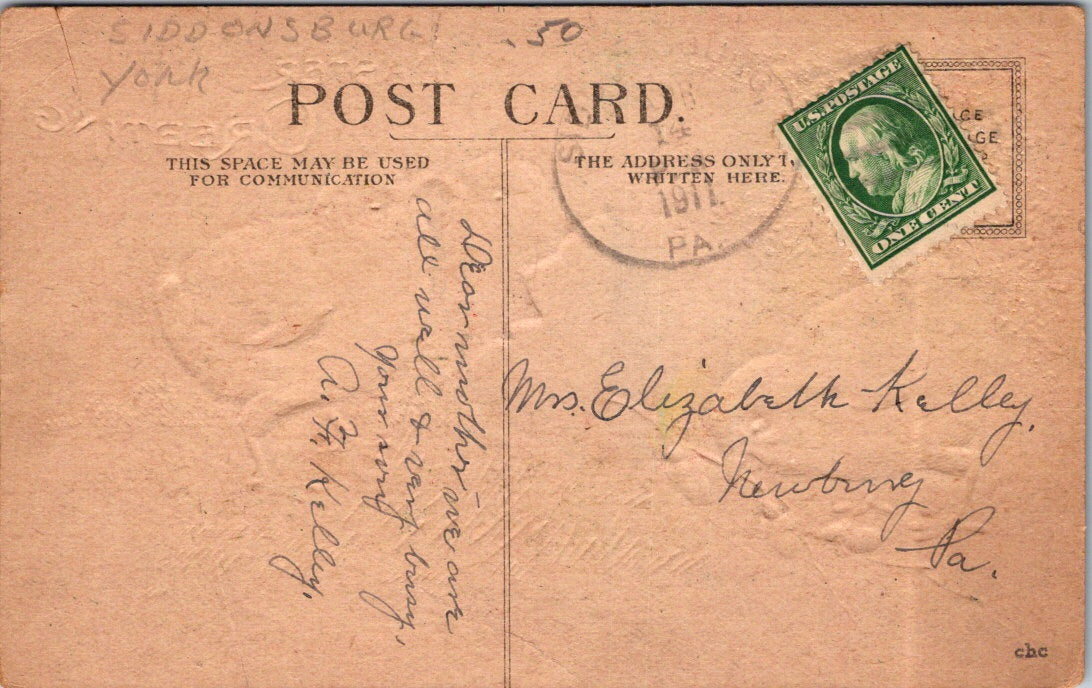 SIDDONSBURG
.50
York
POST CARD.
THIS SPACE MAY BE USED
FOR COMMUNICATION
THE ADDRESS ONLY
WRITTEN HERE.
14
1911.
PA.
U.S. POSTAGE
ONE CENT
Dear mother - we are
all well & very busy.
Your
A. F. Kelley.
Mrs. Elizabeth Kelley,
Newburg
Pa.
chc